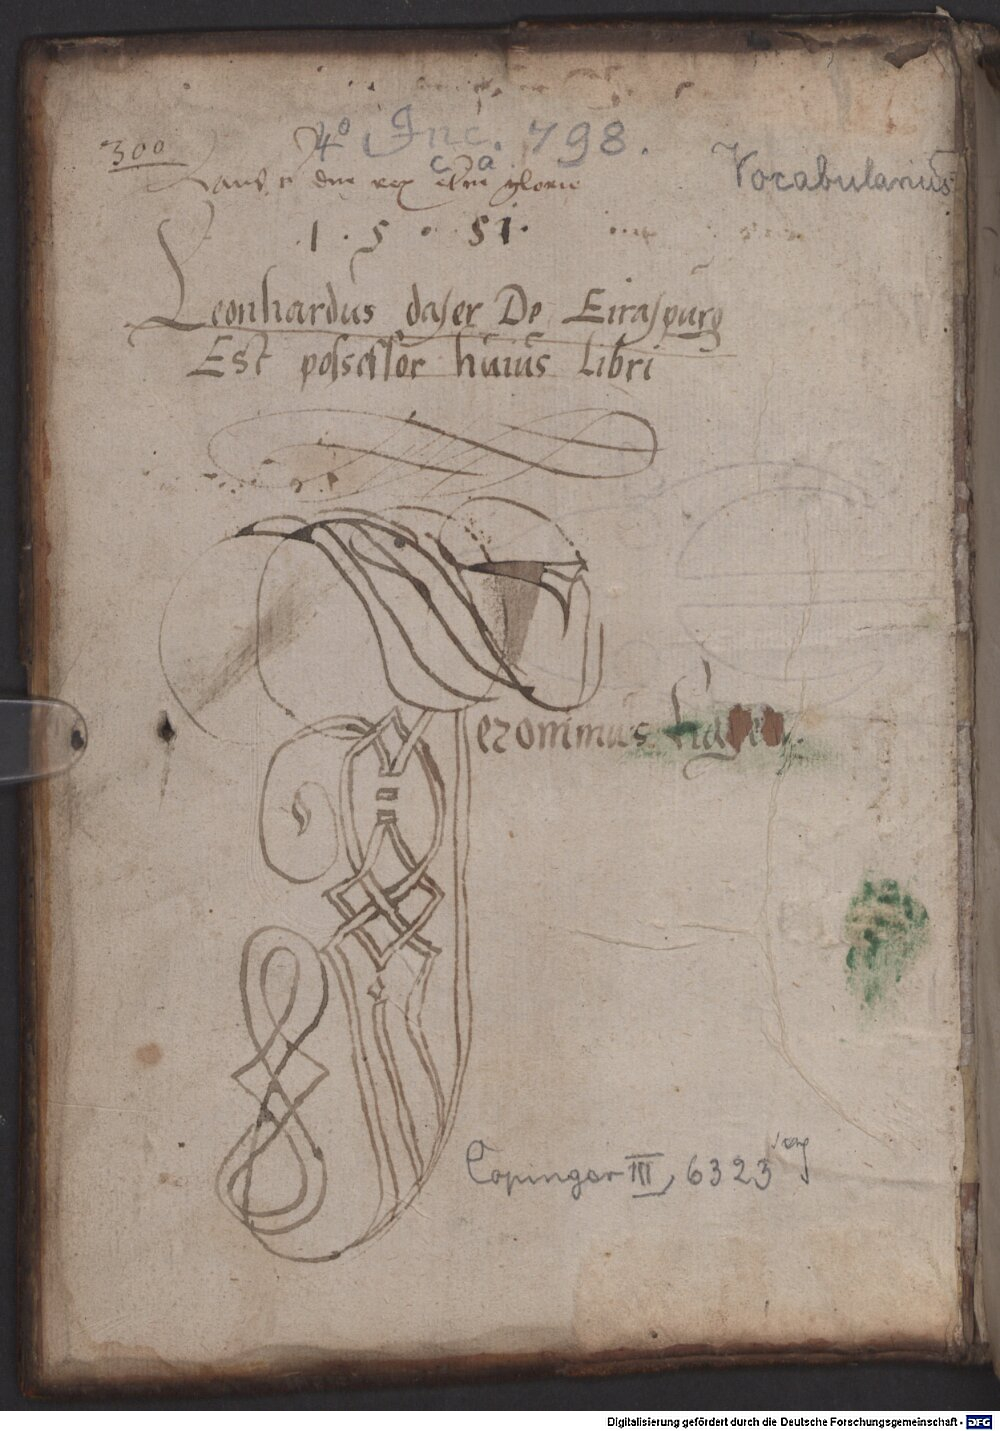 300
4° Inc. 798.
c a
Vocabularius
Laus t dne rex etne glorie
1 . 5 . 51.
Leonhardus daser De Eiraspurg
Est possessor huius libri
Ieronimus
Copinger III, 6323
Digitalisierung gefördert durch die Deutsche Forschungsgemeinschaft - DFG